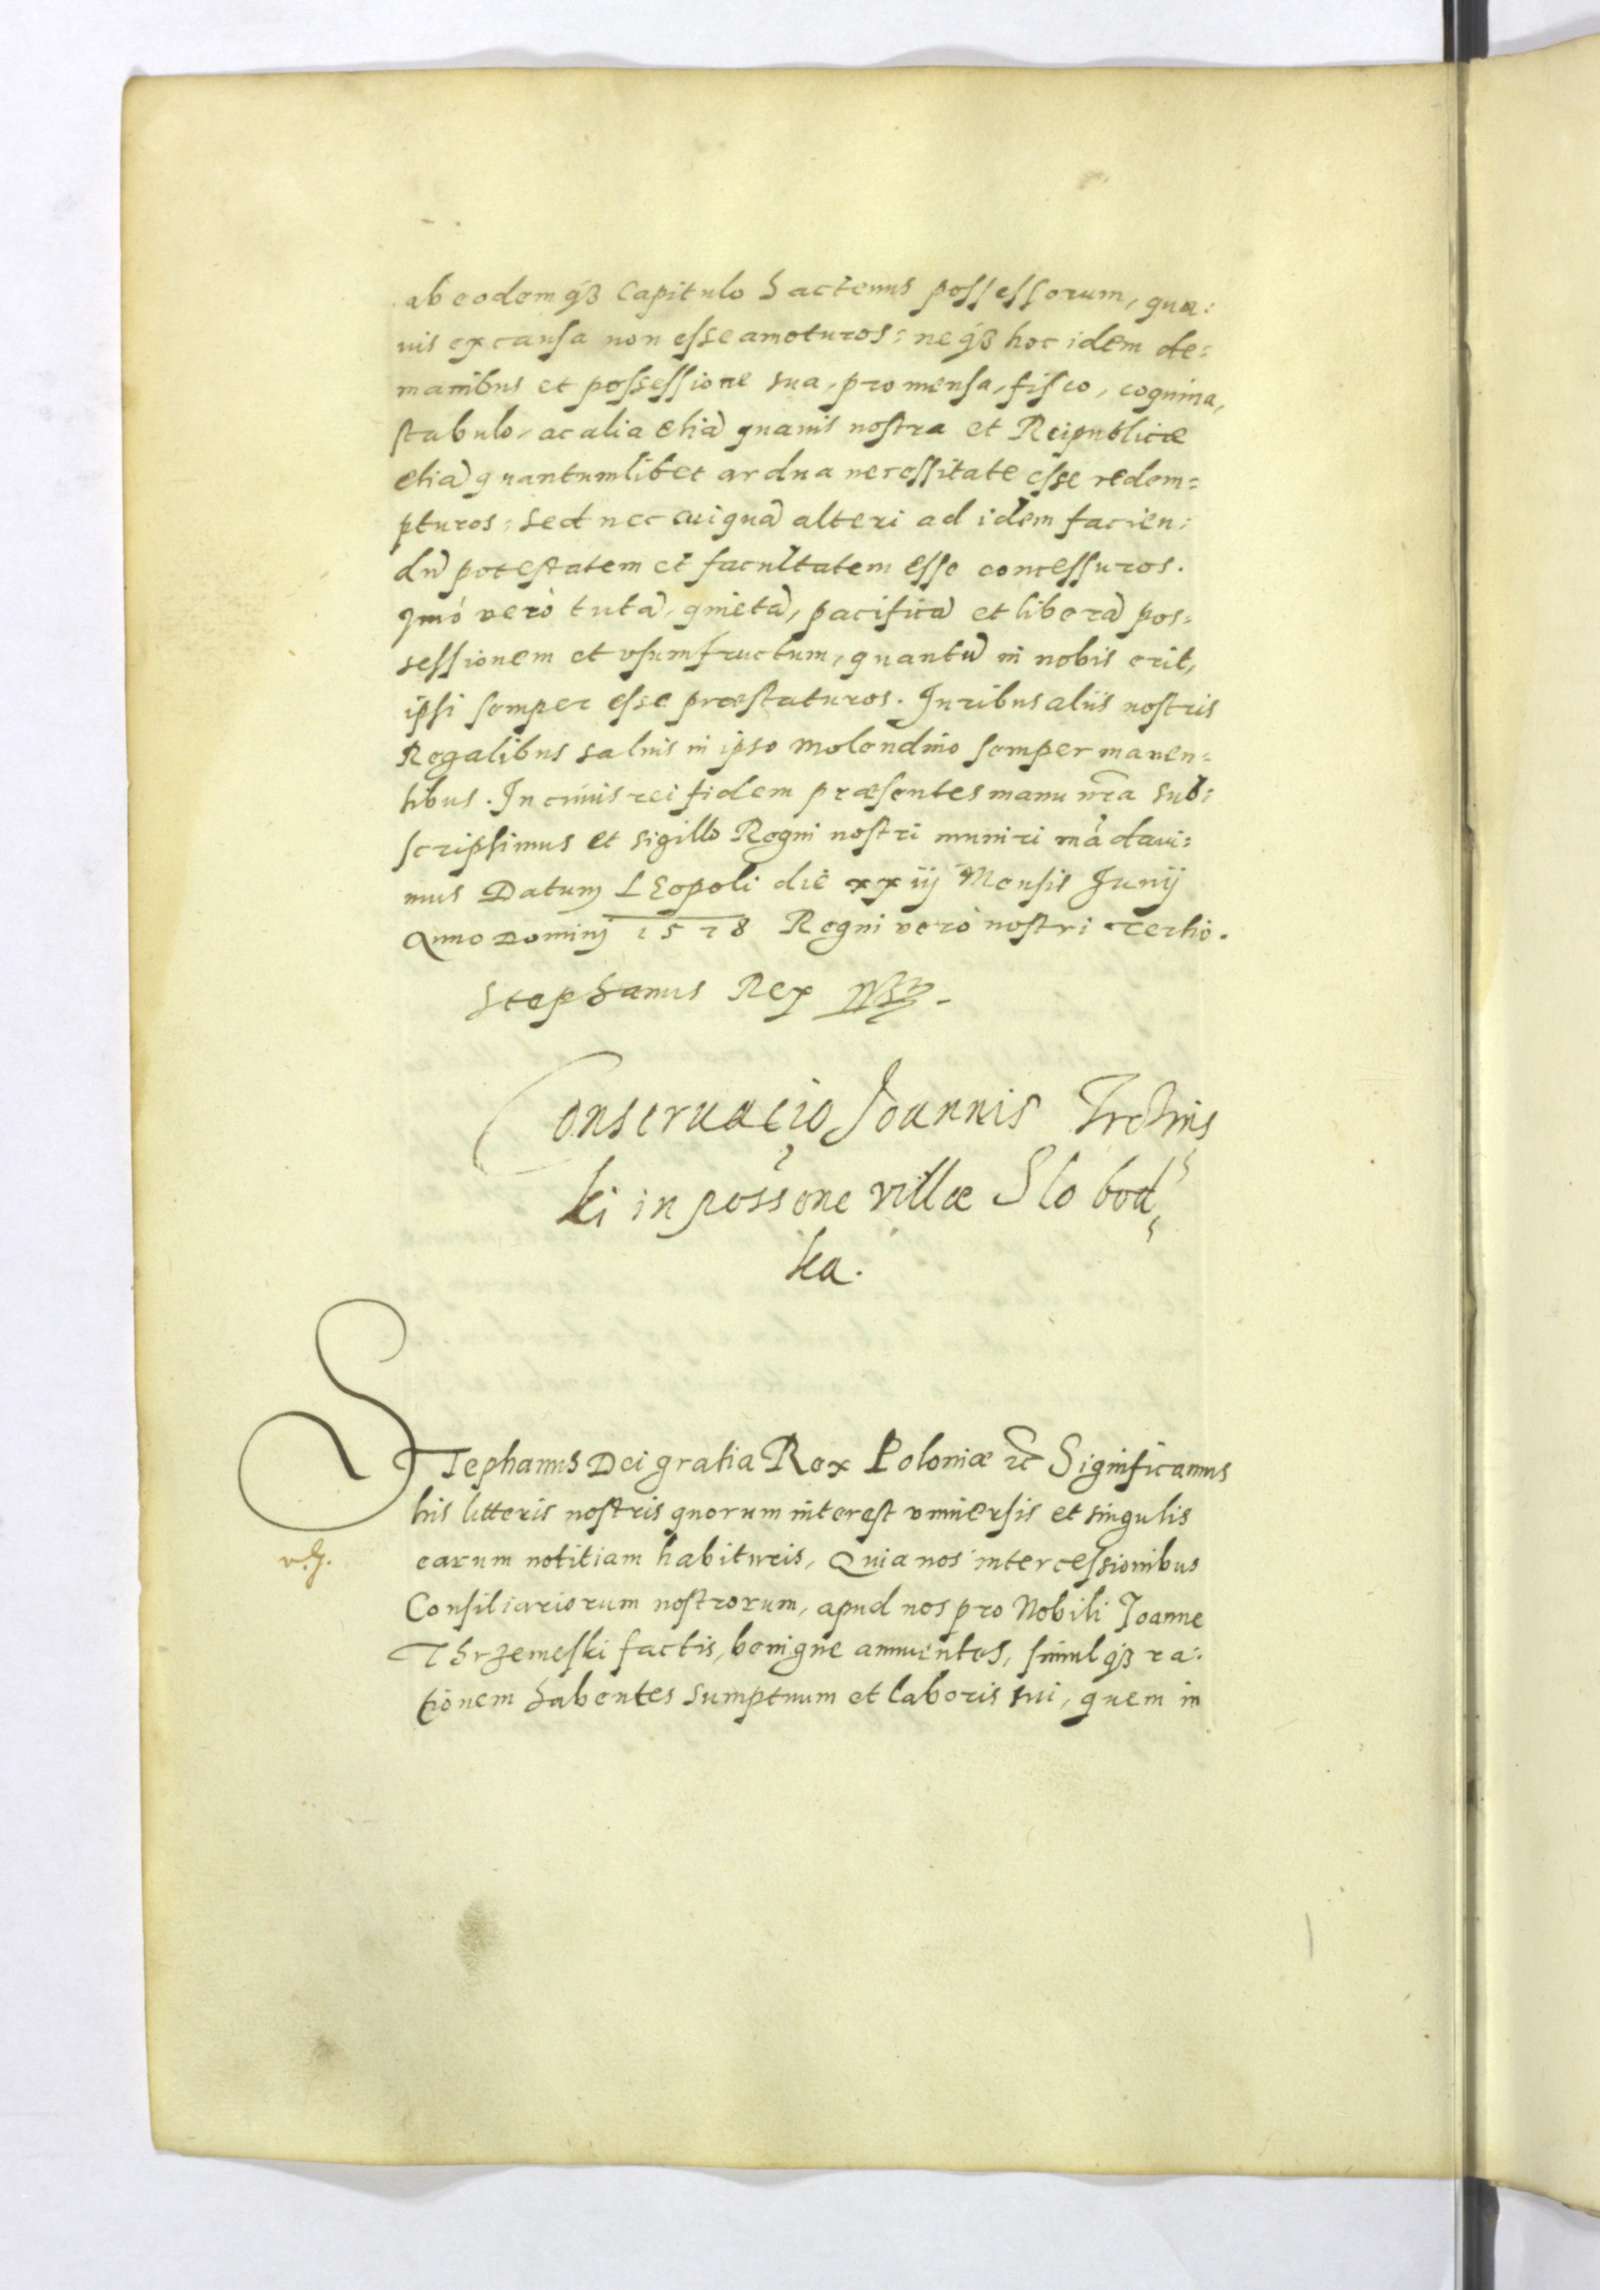 ab eodemq́ꝫ Capitulo hactenus possessorum, qua:
uis ex causa non esse amoturos: neq́ꝫ hoc idem de:
manibus et possessione sua, pro mensa, fisco, coquina,
stabulo, ac alia etiã quauis nostra et Reipublicæ
etiã quantumlibet ardua necessitate esse redem=
pturos: sed nec cuiquã alteri ad idem facien:
dũ potestatem et facultatem esse concessuros.
Imò verò tutã, quietã, pacificã et liberã pos=
sessionem et vsumfructum, quantũ in nobis erit,
ipsi semper esse præstaturos. Juribus aliis nostris
Regalibus saluis in ipso molendino semper manen=
tibus. In cuius rei fidem præsentes manu nr̃a sub:
scripsimus et sigillo Regni nostri muniri mãdaui:
mus Datum Leopoli die xxiij Mensis Junij
Anno Domini 1578 Regni verò nostri Tertio.
Stephanus Rex
Conseruacio Joannis
ki in possone villæ Slobod
ka.
Stephanus Dei gratia Rex Poloniæ ⁊c̃ Significamus
his litteris nostris quorum interest vniuersis et singulis
earum notitiam habituris, Quia nos intercessionibus
Consiliariorum nostrorum, apud nos pro Nobili Joanne
Thrzemeski factis, benigne annuentes, simulq́ꝫ ra:
tionem habentes sumptuum et laboris sui, quem in